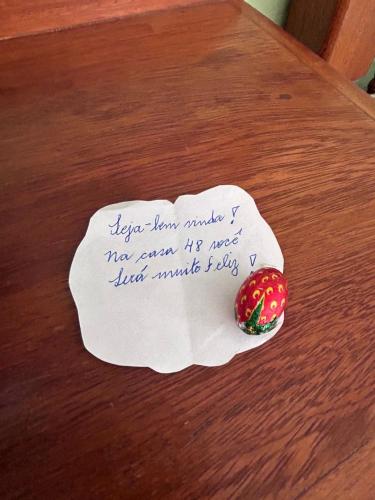 Seja-bem vinda!
Na casa 48 você
Será muito feliz!